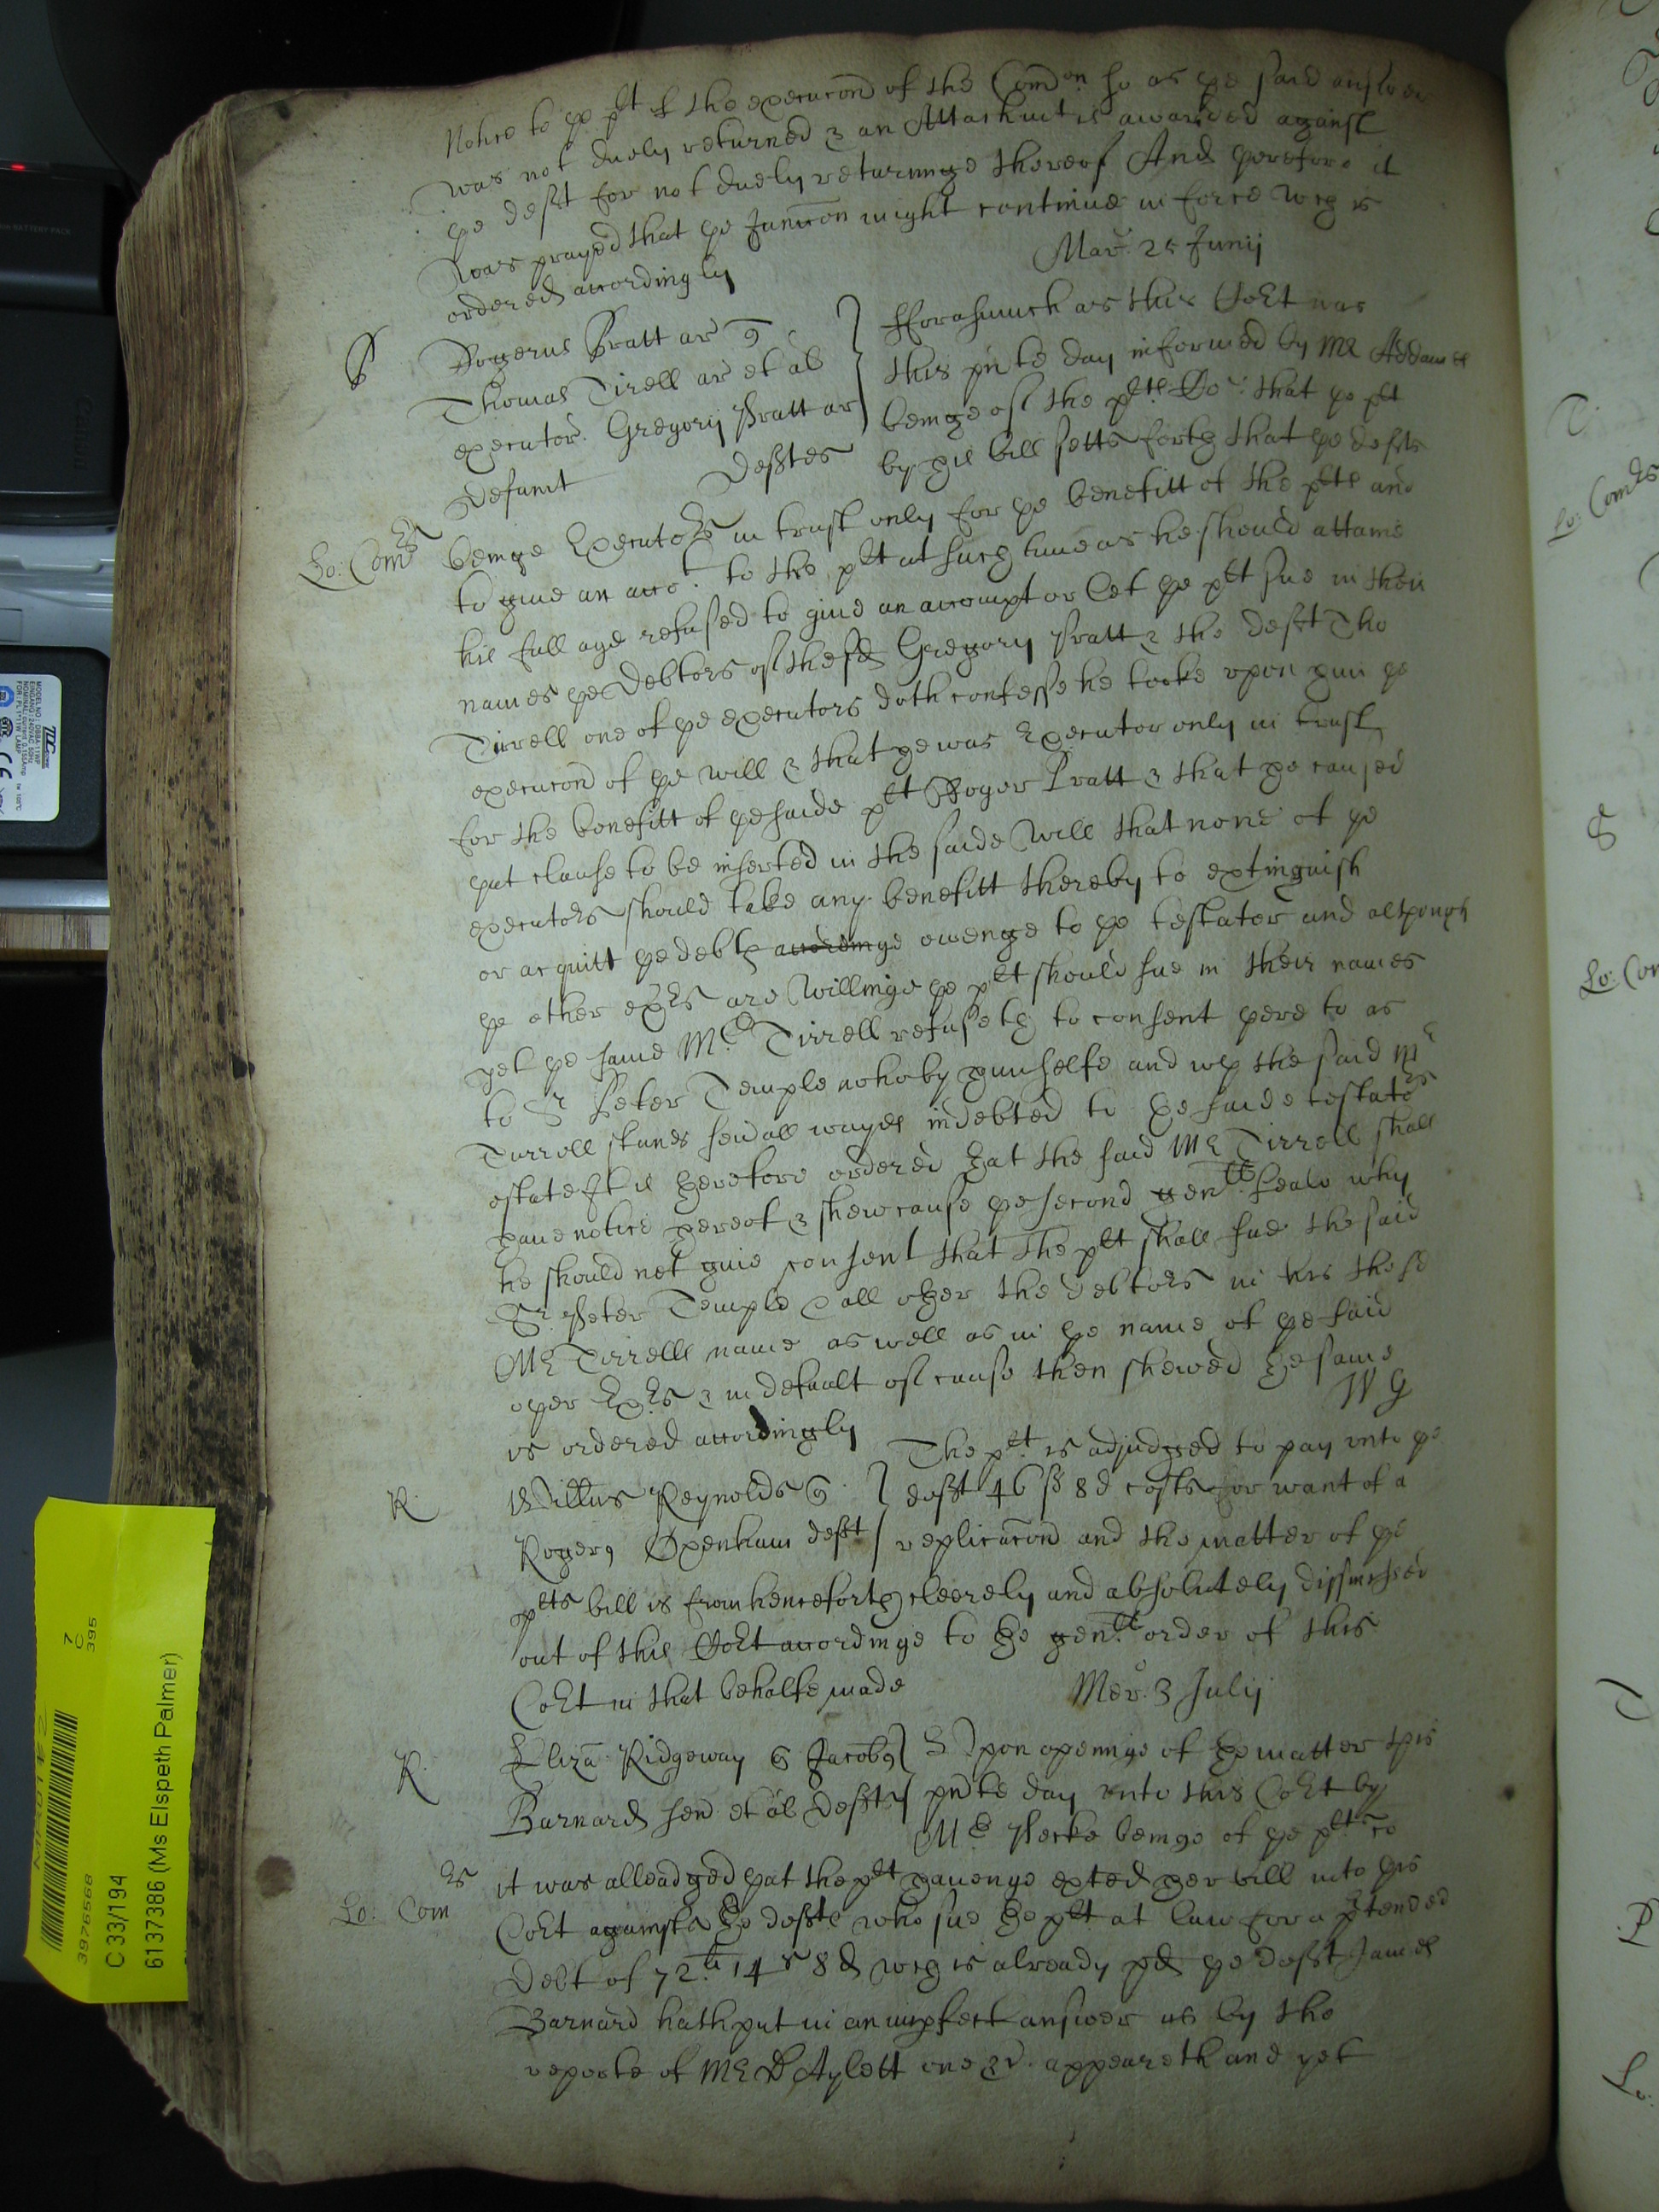 Notice to ye plt of the execucon of the Comon so as ye said answer
was not duely returned & an Attachmt is awarded against
ye deft for not duely returninge thereof And therefore it
was prayed that ye Junccon might continue in force wch is
ordered accordingly
Mar. 25 Junij
P
Rogerus Pratt ar
Thomas Tirell ar et al
executor. Gregorij Pratt ar
Defunct Deftes
fforasmuch as this Cort was
this pnte day informed by Mr Addames
beinge of the plts Co: that ye plt
by his bill setts forth that ye defts
Lo: Comrs
beinge Executors in trust only for ye benefitt of the plte and
to giue an acco:t to the plt at such time as he should attaine
his full age refused to giue an accompt or let ye plt sue in their
names ye Debtors of the sd Gregory Pratt & the deft Tho
Tirrell one of ye executors doth confesse he tooke vpon him ye
execucon of ye will & that he was Executor only in trust
for the benefitt of ye saide plt Roger Pratt & that he caused
that clause to be inserted in the saide Will that none of ye
executors should take any benefitt thereby to extinguish
or acquitt ye debts accordinge oweinge to ye testator and although
ye other exrs are Willinge ye plt should sue in their names
yet ye same Mr Tirrell refuseth to consent there to as
to Sr Peter Temple who by himselfe and wth the said Mr
Turroll stands seuall wayes indebted to ye saide testators
estate It is therefore ordered that the said Mr Tirrell shall
haue notice hereof & shew cause ye second genll seale why
he should not giue consent that the plt shall sue the said
Sr Peter Temple & all other the debtors in his the sd
Mr Tirrells name as well as in ye name of ye said
other Exrs & in default of cause then shewed the same
is ordered accordingly
W G
R.
Willus Reynolds
Rogerq Oxenham deft
The plt is adjudged to pay vnto ye
deft 46 s 8 d costs for want of a
replicacon and the matter of ye
plts bill is from henceforth cleerely and absolutely dissmissed
out of this Cort accordinge to the genll order of this
Cort in that behalfe made
Mer. 3 Julij
R.
Eliza Ridgeway Jacobq
Barnard sen et al deftes
Vpon openinge of the matter this
pnte day vnto this Cort by
Mr Pecke beinge of ye plts co
Lo: Comrs
it was alleadged that the plt haueinge exted her bill into this
Cort against the defts who sue the plt at law for a ptended
Debt of 72li 14s 8d wch is already pd ye deft James
Barnard hath put in an impfect answer as by the
reporte of Mr Dr Aylett one &c. appeareth and yet
Lo: Comrs
Lo: Com
3976568
7
C
395
C 33/194
6137386 (Ms Elspeth Palmer)
TDC
MODEL NO : DSBA-11WP
EINGANG : 240VAC 50Hz
NOMINAL current 0.155Amp
FOR : PL 11*1 IN LAMP
CE
BATTERY PACK